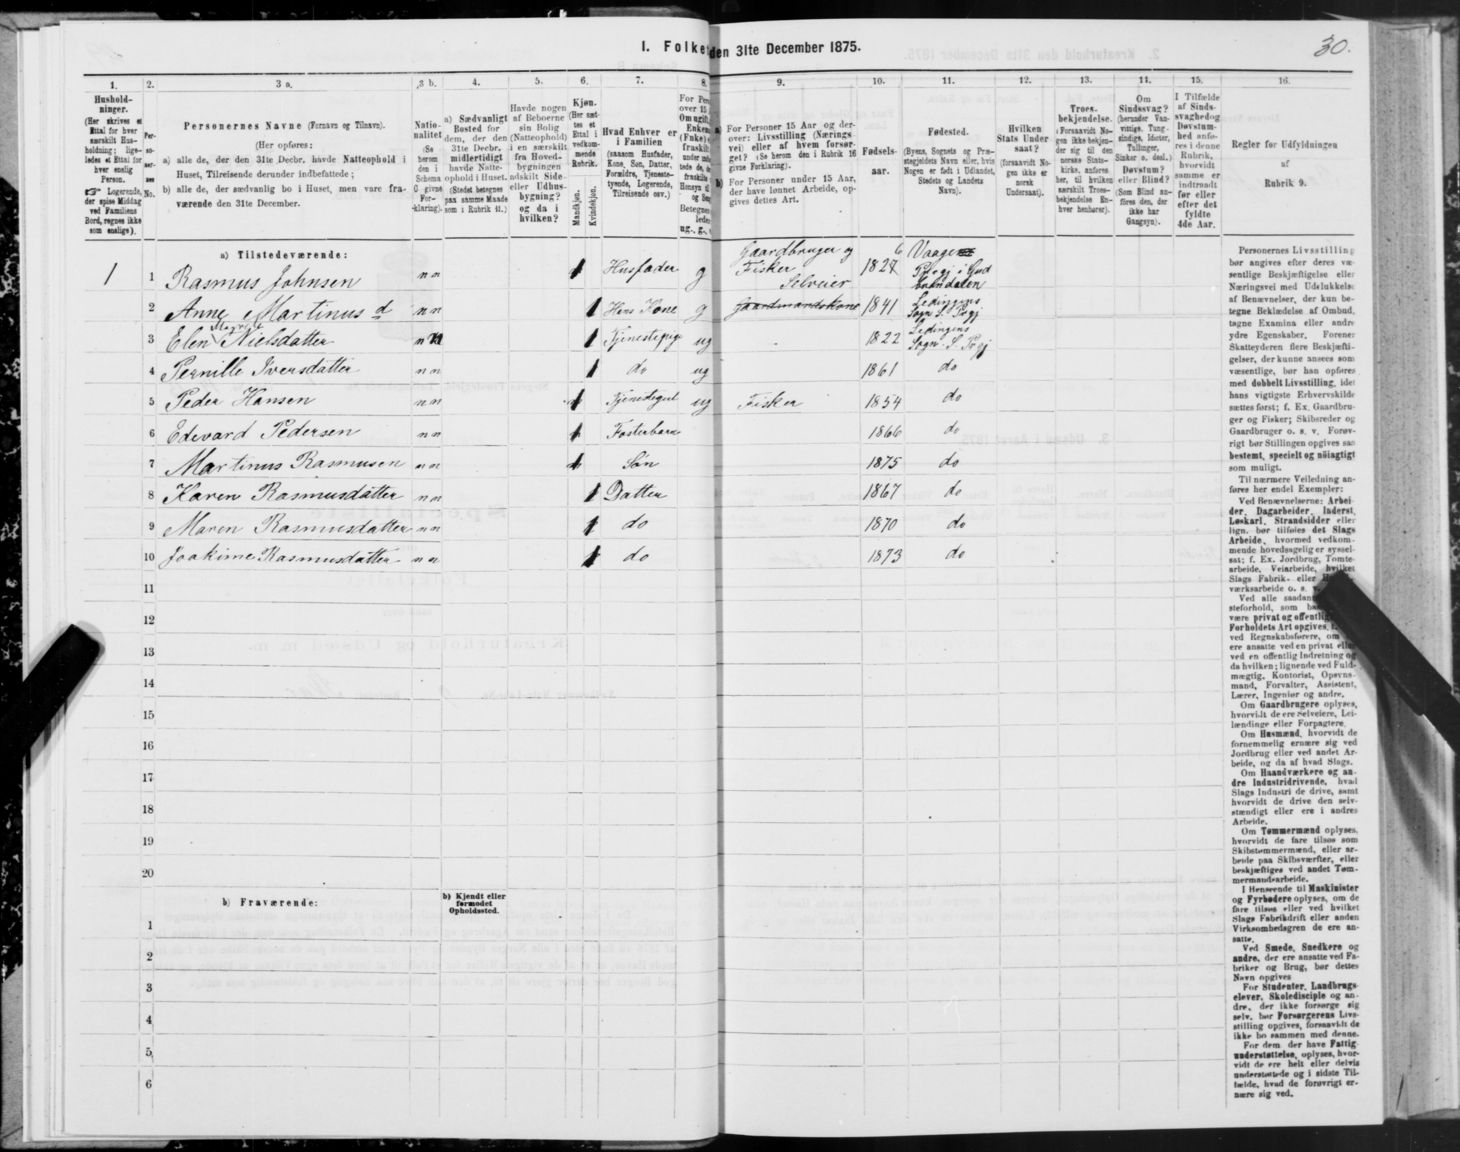 I. Folke den 31te December 1875.
30.
1. 2. 3 a. 3 b. 4. 5. 6. 7. 8. 9. 10. 11. 12. 13. 14. 15. 16.
Hushold-
ninger.
(Her skrives et
Ettal for hver
særskilt Hus-
holdning; lige-
ledes et Ettal for
hver enslig
Person.
☞ Logerende,
der spise Middag
ved Familiens
Bord, regnes ikke
som enslige).
Per-
so-
ner-
nes
No.
Personernes Navne (Fornavn og Tilnavn).
(Her opføres:
a) alle de, der den 31te Decbr. havde Natteophold i
Huset, Tilreisende derunder indbefattede;
b) alle de, der sædvanlig bo i Huset, men vare fra-
værende den 31te December.
Natio-
nalitet
(Se
herom
den i
Schema
G givne
For-
klaring).
a) Sædvanligt
Bosted for
dem, der den
31te Decbr.
midlertidigt
havde Natte-
ophold i Huset.
(Stedet betegnes
paa samme Maade
som i Rubrik 11.)
Havde nogen
af Beboerne
sin Bolig
(Natteophold)
i en særskilt
fra Hoved-
bygningen
adskilt Side-
eller Udhus-
bygning?
og da i
hvilken?
Kjøn.
(Her sæt-
tes et
Ettal i
vedkom-
mende
Rubrik.
Mandkjøn.
Kvindekjøn.
Hvad Enhver er
i Familien
(saasom Husfader,
Kone, Søn, Datter,
Forældre, Tjeneste-
tyende, Logerende,
Tilreisende osv.)
For Pers
over 15
Om ugift,
Enkem
(Fuke) e
fraskilt
ug., g.,
a)
For Personer 15 Aar og der-
over: Livsstilling (Nærings-
vei) eller af hvem forsør-
get? (Se herom den i Rubrik 16
givne Forklaring).
b)
For Personer under 15 Aar,
der have lønnet Arbeide, op-
gives dettes Art.
Fødsels-
aar.
Fødested.
(Byens, Sognets og Præ-
stegjeldets Navn eller, hvis
Nogen er født i Udlandet,
Stedets og Landets
Navn).
Hvilken
Stats Under-
saat?
(forsaavidt No-
gen ikke er
norsk
Undersaat).
Troes-
bekjendelse.
(Forsaavidt No-
gen ikke bekjen-
der sig til den
norske Stats-
kirke, anføres
her, til hvilken
særskilt Troes-
bekjendelse En-
hver henhører).
Om
Sindssvag?
(herunder Van-
vittige, Tung-
sindige, Idioter,
Tullinger,
Sinker o. desl.)
Døvstum?
eller Blind?
(Som Blind an-
føres den, der
ikke har
Gangsyn).
I Tilfælde
af Sinds-
svaghed og
Døvstum-
hed anfø-
res i denne
Rubrik,
hvorvidt
samme er
indtraadt
før eller
efter det
fyldte
4de Aar.
Regler for Udfyldningen
af
Rubrik 9.
a) Tilstedeværende:
1 1 Rasmus Johnsen n n 1 Husfader g Gaardbruger og Fisker Selveier 1827 6 Vaage Prgj i Gud brandsdalen
2 Anne Martinus d n n 1 Hans Kone g Gaardmandskone 1841 Lødingens Sogn S. Prgj
3 Elen Marie Nielsdatter n n 1 Tjenestepige ug 1822 Lødingens Sogn S. Prgj
4 Pernille Iversdatter n n 1 do ug 1861 do
5 Peder Hansen n n 1 Tjenestegut ug Fisker 1854 do
6 Edevard Pedersen n n 1 Fosterbarn 1866 do
7 Martinus Rasmusen n n 1 Søn 1875 do
8 Karen Rasmusdatter n n 1 Datter 1867 do
9 Maren Rasmusdatter n n 1 do 1870 do
10 Joakime Rasmusdatter n n 1 do 1873 do
11
12
13
14
15
16
17
18
19
20
b) Fraværende:
b) Kjendt eller
formodet
Opholdssted.
1
2
3
4
5
6
Personernes Livsstilling
bør angives efter deres væ-
sentlige Beskjæftigelse eller
Næringsvei med Udelukkelse
af Benævnelser, der kun be-
tegne Beklædelse af Ombud,
tagne Examina eller andre
ydre Egenskaber. Forener
Skatteyderen flere Beskjæfti-
gelser, der kunne ansees som
væsentlige, bør han opføres
med dobbelt Livsstilling, idet
hans vigtigste Erhvervskilde
sættes først; f. Ex. Gaardbru-
ger og Fisker; Skibsreder og
Gaardbruger o. s. v. Forøv-
rigt bør Stillingen opgives saa
bestemt, specielt og nøiagtigt
som muligt.
Til nærmere Veiledning an-
føres her endel Exempler:
Ved Benævnelserne: Arbei-
der, Dagarbeider, Inderst,
Løskarl, Strandsidder eller
lign. bør tilføies det Slags
Arbeide, hvormed vedkom-
mende hovedsagelig er syssel-
sat; f. Ex. Jordbrug, Tomte-
arbeide, Veiarbeide, hvilket
Slags Fabrik- eller
værksarbeide o. s. v.
Ved alle saadan
steforhold, som
være privat og offentlig
Forholdets Art opgives,
ved Regnskabsførere, om
ere ansatte ved en privat eller
ved en offentlig Indretning og
da hvilken; lignende ved Fuld-
mægtig, Kontorist, Opsyns-
mand, Forvalter, Assistent,
Lærer, Ingeniør og andre.
Om Gaardbrugere oplyses,
hvorvidt de ere Selveiere, Lei-
lændinge eller Forpagtere.
Om Husmænd, hvorvidt de
fornemmelig ernære sig ved
Jordbrug eller ved andet Ar-
beide, og da af hvad Slags.
Om Haandværkere og an-
dre Industridrivende, hvad
Slags Industri de drive, samt
hvorvidt de drive den selv-
stændigt eller ere i andres
Arbeide.
Om Tømmermænd oplyses,
hvorvidt de fare tilsøs som
Skibstømmermænd, eller ar-
beide paa Skibsværfter, eller
beskjæftiges ved andet Tøm-
mermandsarbeide.
I Henseende til Maskinister
og Fyrbødere oplyses, om de
fare tilsøs eller ved hvilket
Slags Fabrikdrift eller anden
Virksomhedsgren de ere an-
satte.
Ved Smede, Snedkere og
andre, der ere ansatte ved Fa-
briker og Brug, bør dettes
Navn opgives
For Studenter, Landbrugs-
elever, Skoledisciple og an-
dre, der ikke forsørge sig
selv, bør Forsørgerens Livs-
stilling opgives, forsaavidt de
ikke bo sammen med denne.
For dem, der have Fattig-
understøttelse, oplyses, hvor-
vidt de ere helt eller delvis
understøttede og i sidste Til-
fælde, hvad de forøvrigt er-
nære sig ved.